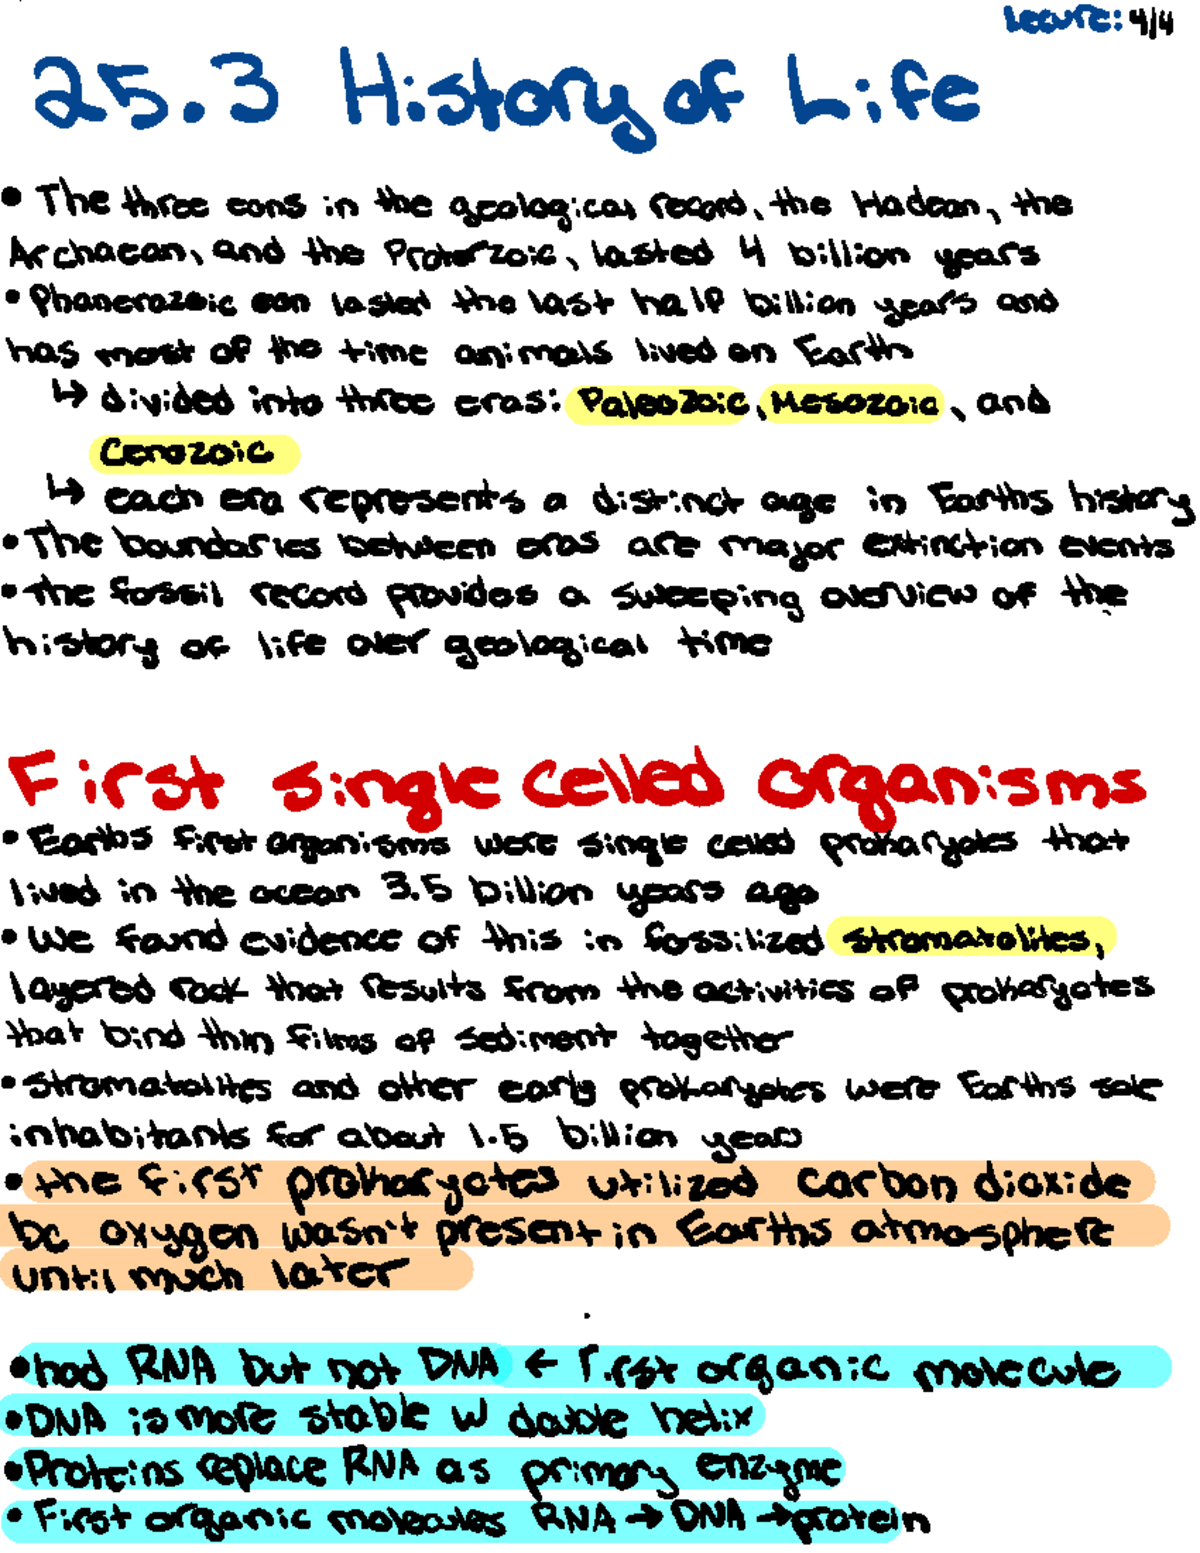 Lecure: 4/4
25.3 History of Life
• The three eons in the geological record, the Hadean, the
Archaean, and the Proterzoic, lasted 4 billion years
• Phanerazoic eon lasted the last half billion years and
has most of the time animals lived on Earth
↳ divided into three eras: Paleozoic, Mesozoic, and
Cenozoic
↳ each era represents a distinct age in Earths history
• The boundaries between eras are major extinction events
• the fossil record provides a sweeping overview of the
history of life over geological time
First single celled organisms
• Earths first organisms were single celled prokaryotes that
lived in the ocean 3.5 billion years ago
• We found evidence of this in fossilized stromatolites,
layered rock that results from the activities of prokaryotes
that bind thin films of sediment together
• Stromatolites and other early prokaryotes were Earths sole
inhabitants for about 1.5 billion years
• the first prokaryotes utilized carbon dioxide
bc oxygen wasn't present in Earths atmosphere
until much later
• had RNA but not DNA ← First organic molecule
• DNA is more stable w double helix
• Proteins replace RNA as primary enzyme
• First organic molecules RNA → DNA → protein